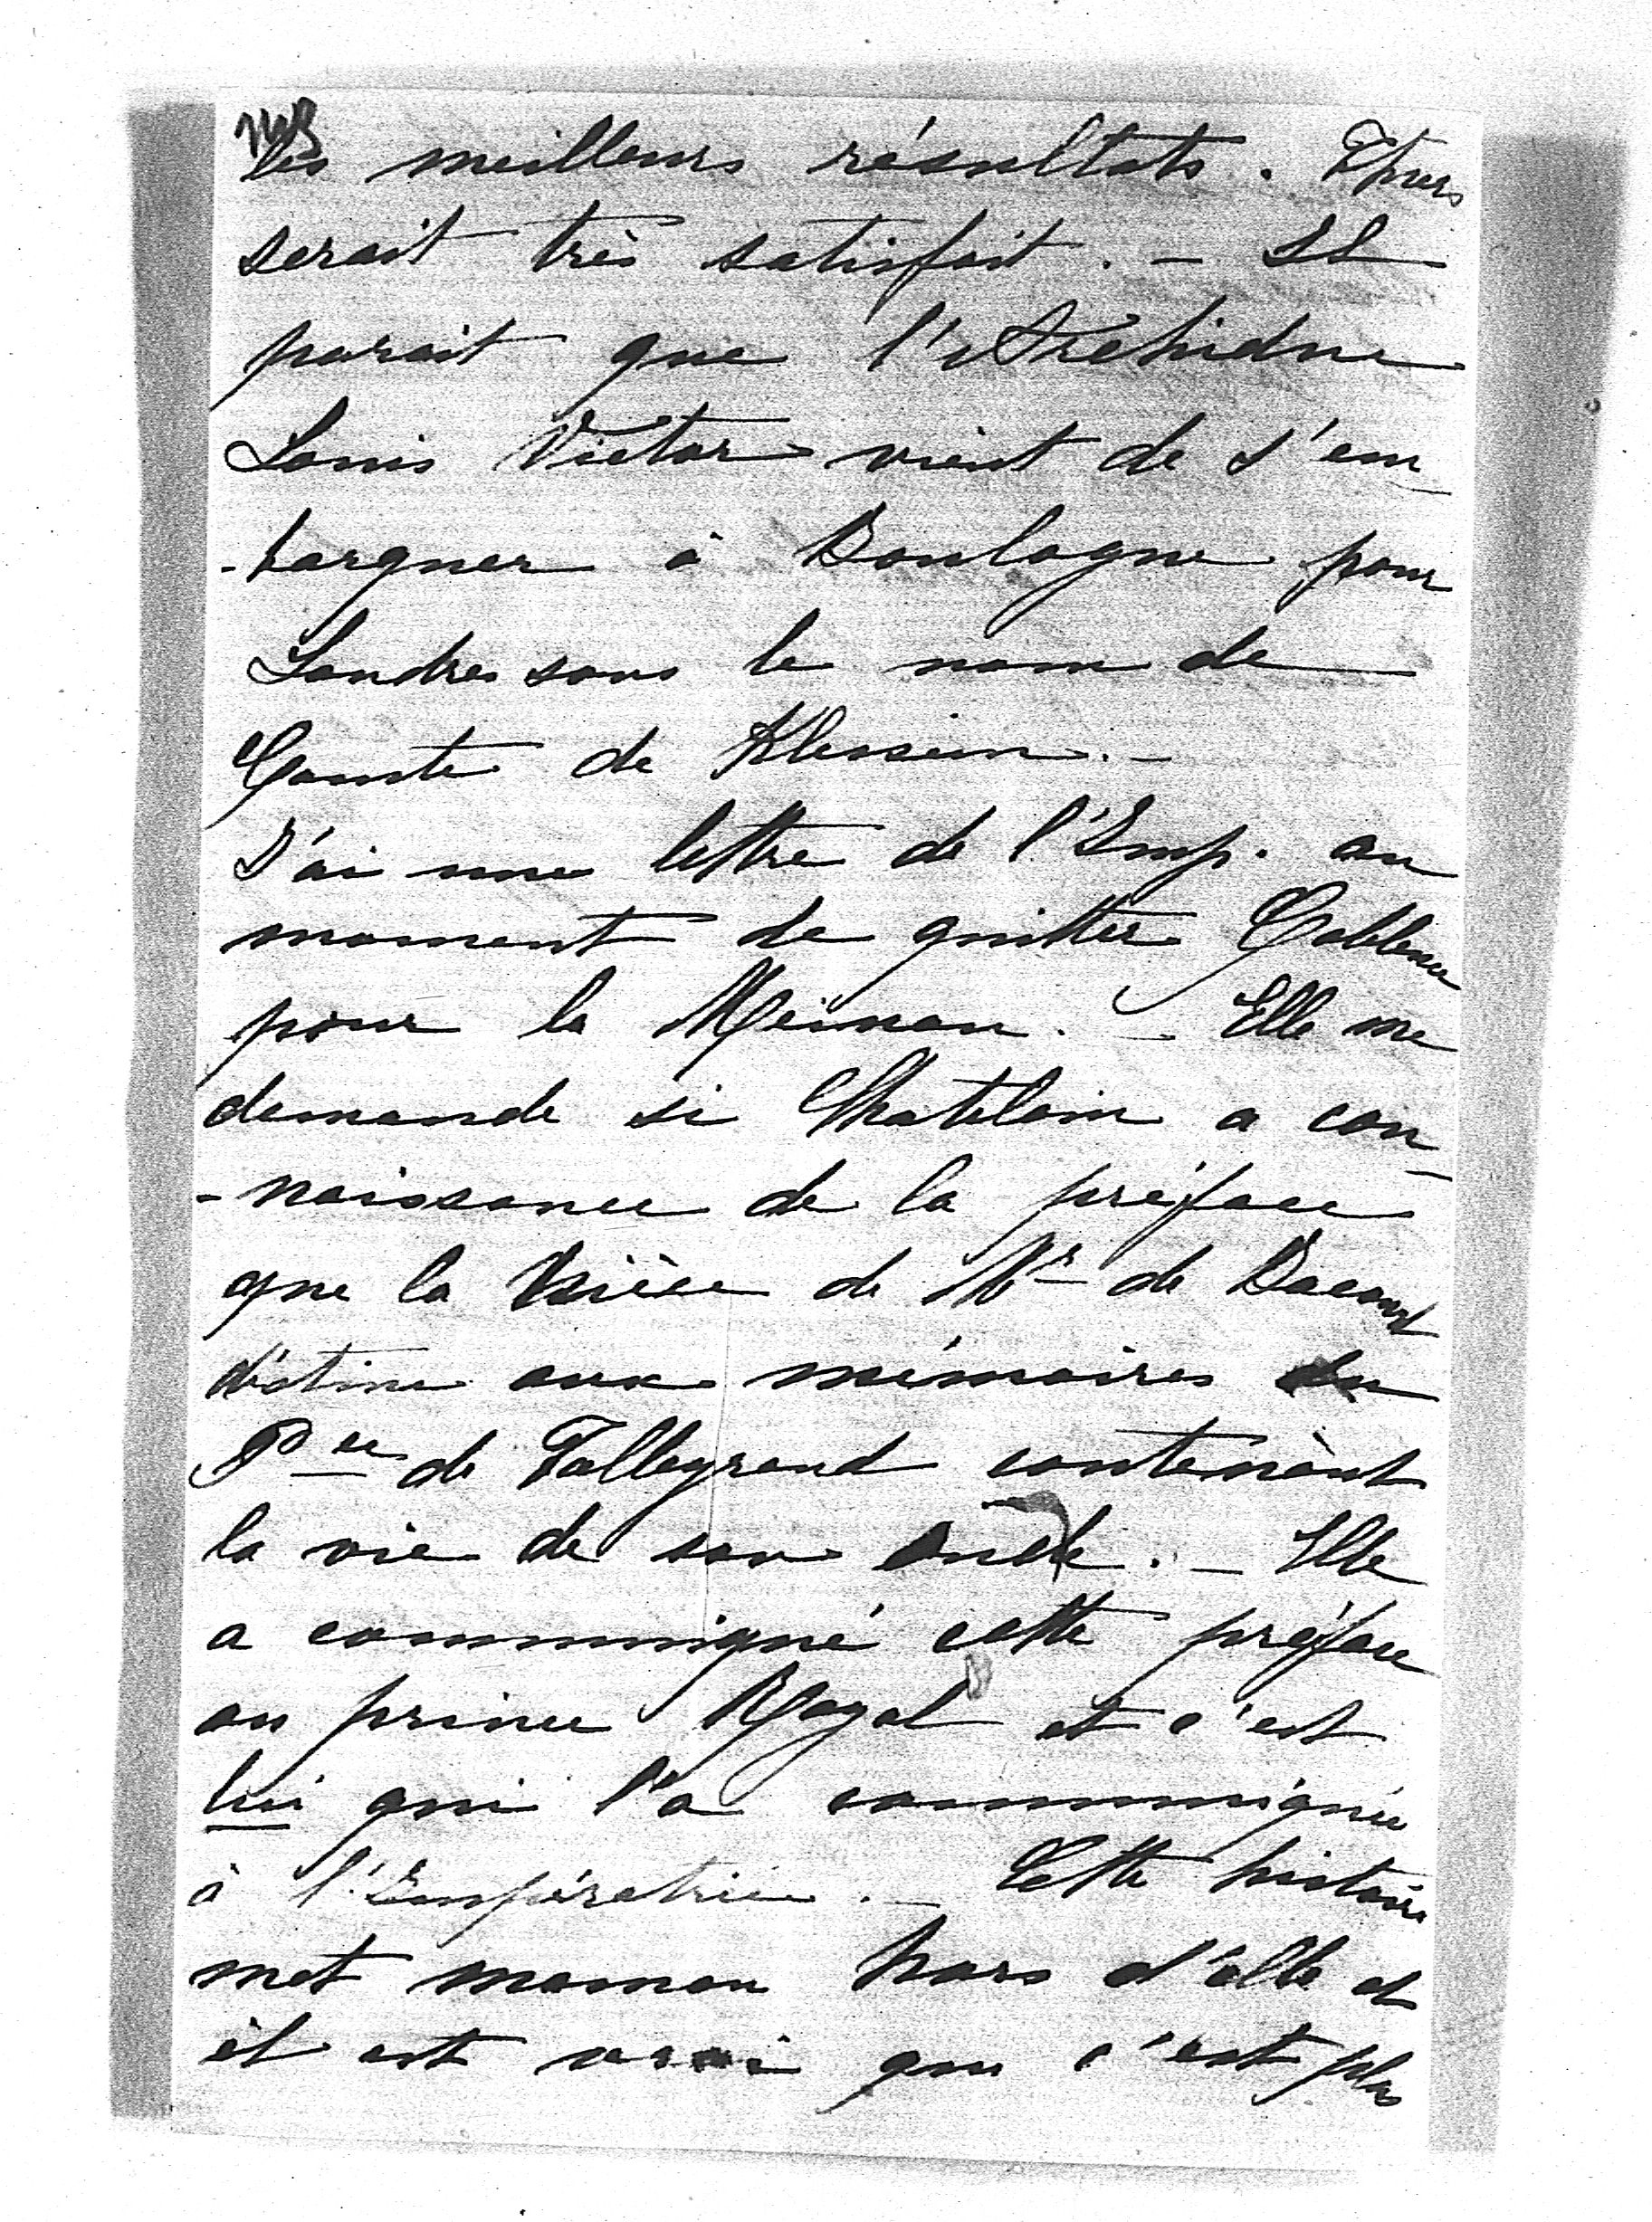 les meilleurs résultats. Thiers
serait très satisfait. – Il
parait que l'Archiduc
Louis Victor vient de s'em
-barquer à Boulogne pour
Londres sous le nom de
Comte de Klessein. –
J'ai une lettre de l'Imp. au
moment de quitter Coblence
pour la Meinau. – Elle me
demande si Chatelain a con
-naissance de la préface
que la nièce de Mr de Bacourt
destine aux mémoires du
Pce de Talleyrand contenant
la vie de son oncle. – Elle
a communiqué cette préface
au prince Royal et c'est
lui qui l'a communiquée
à l'Impératrice. – Cette histoire
met maman hors d'elle et
il est vrai que c'est plus